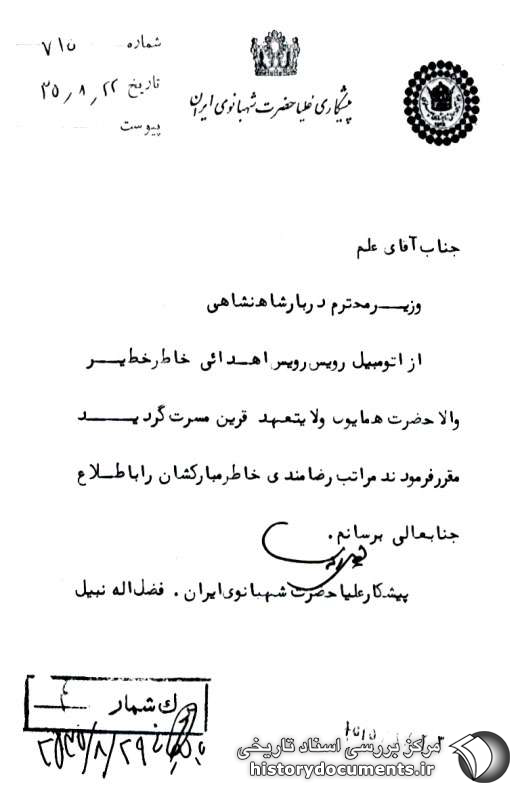 شماره ۷۱۵
تاریخ ۳۵٫۸٫۲۲
پیوست
پیشکاری علیاحضرت شهبانوی ایران
جناب آقای علم
وزیر محترم دربار شاهنشاهی
از اتومبیل رویس رویس اهدائی خاطر خطیر
والاحضرت همایون ولایتعهد قرین مسرت گردید
مقرر فرمودند مراتب رضامندی خاطر مبارکشان را باطلاع
جنابعالی برسانم.
پیشکار علیاحضرت شهبانوی ایران. فضل اله نبیل
ك شمار
۲۵۳۵/۸/۲۹
مرکز بررسی اسناد تاریخی
historydocuments.ir